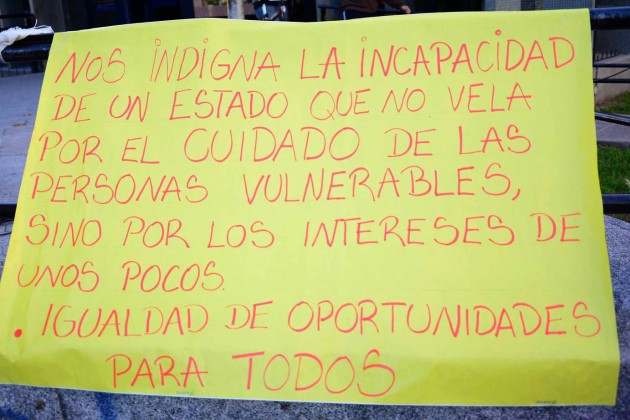 NOS INDIGNA LA INCAPACIDAD
DE UN ESTADO QUE NO VELA
POR EL CUIDADO DE LAS
PERSONAS VULNERABLES,
SINO POR LOS INTERESES DE
UNOS POCOS.
. IGUALDAD DE OPORTUNIDADES
PARA TODOS